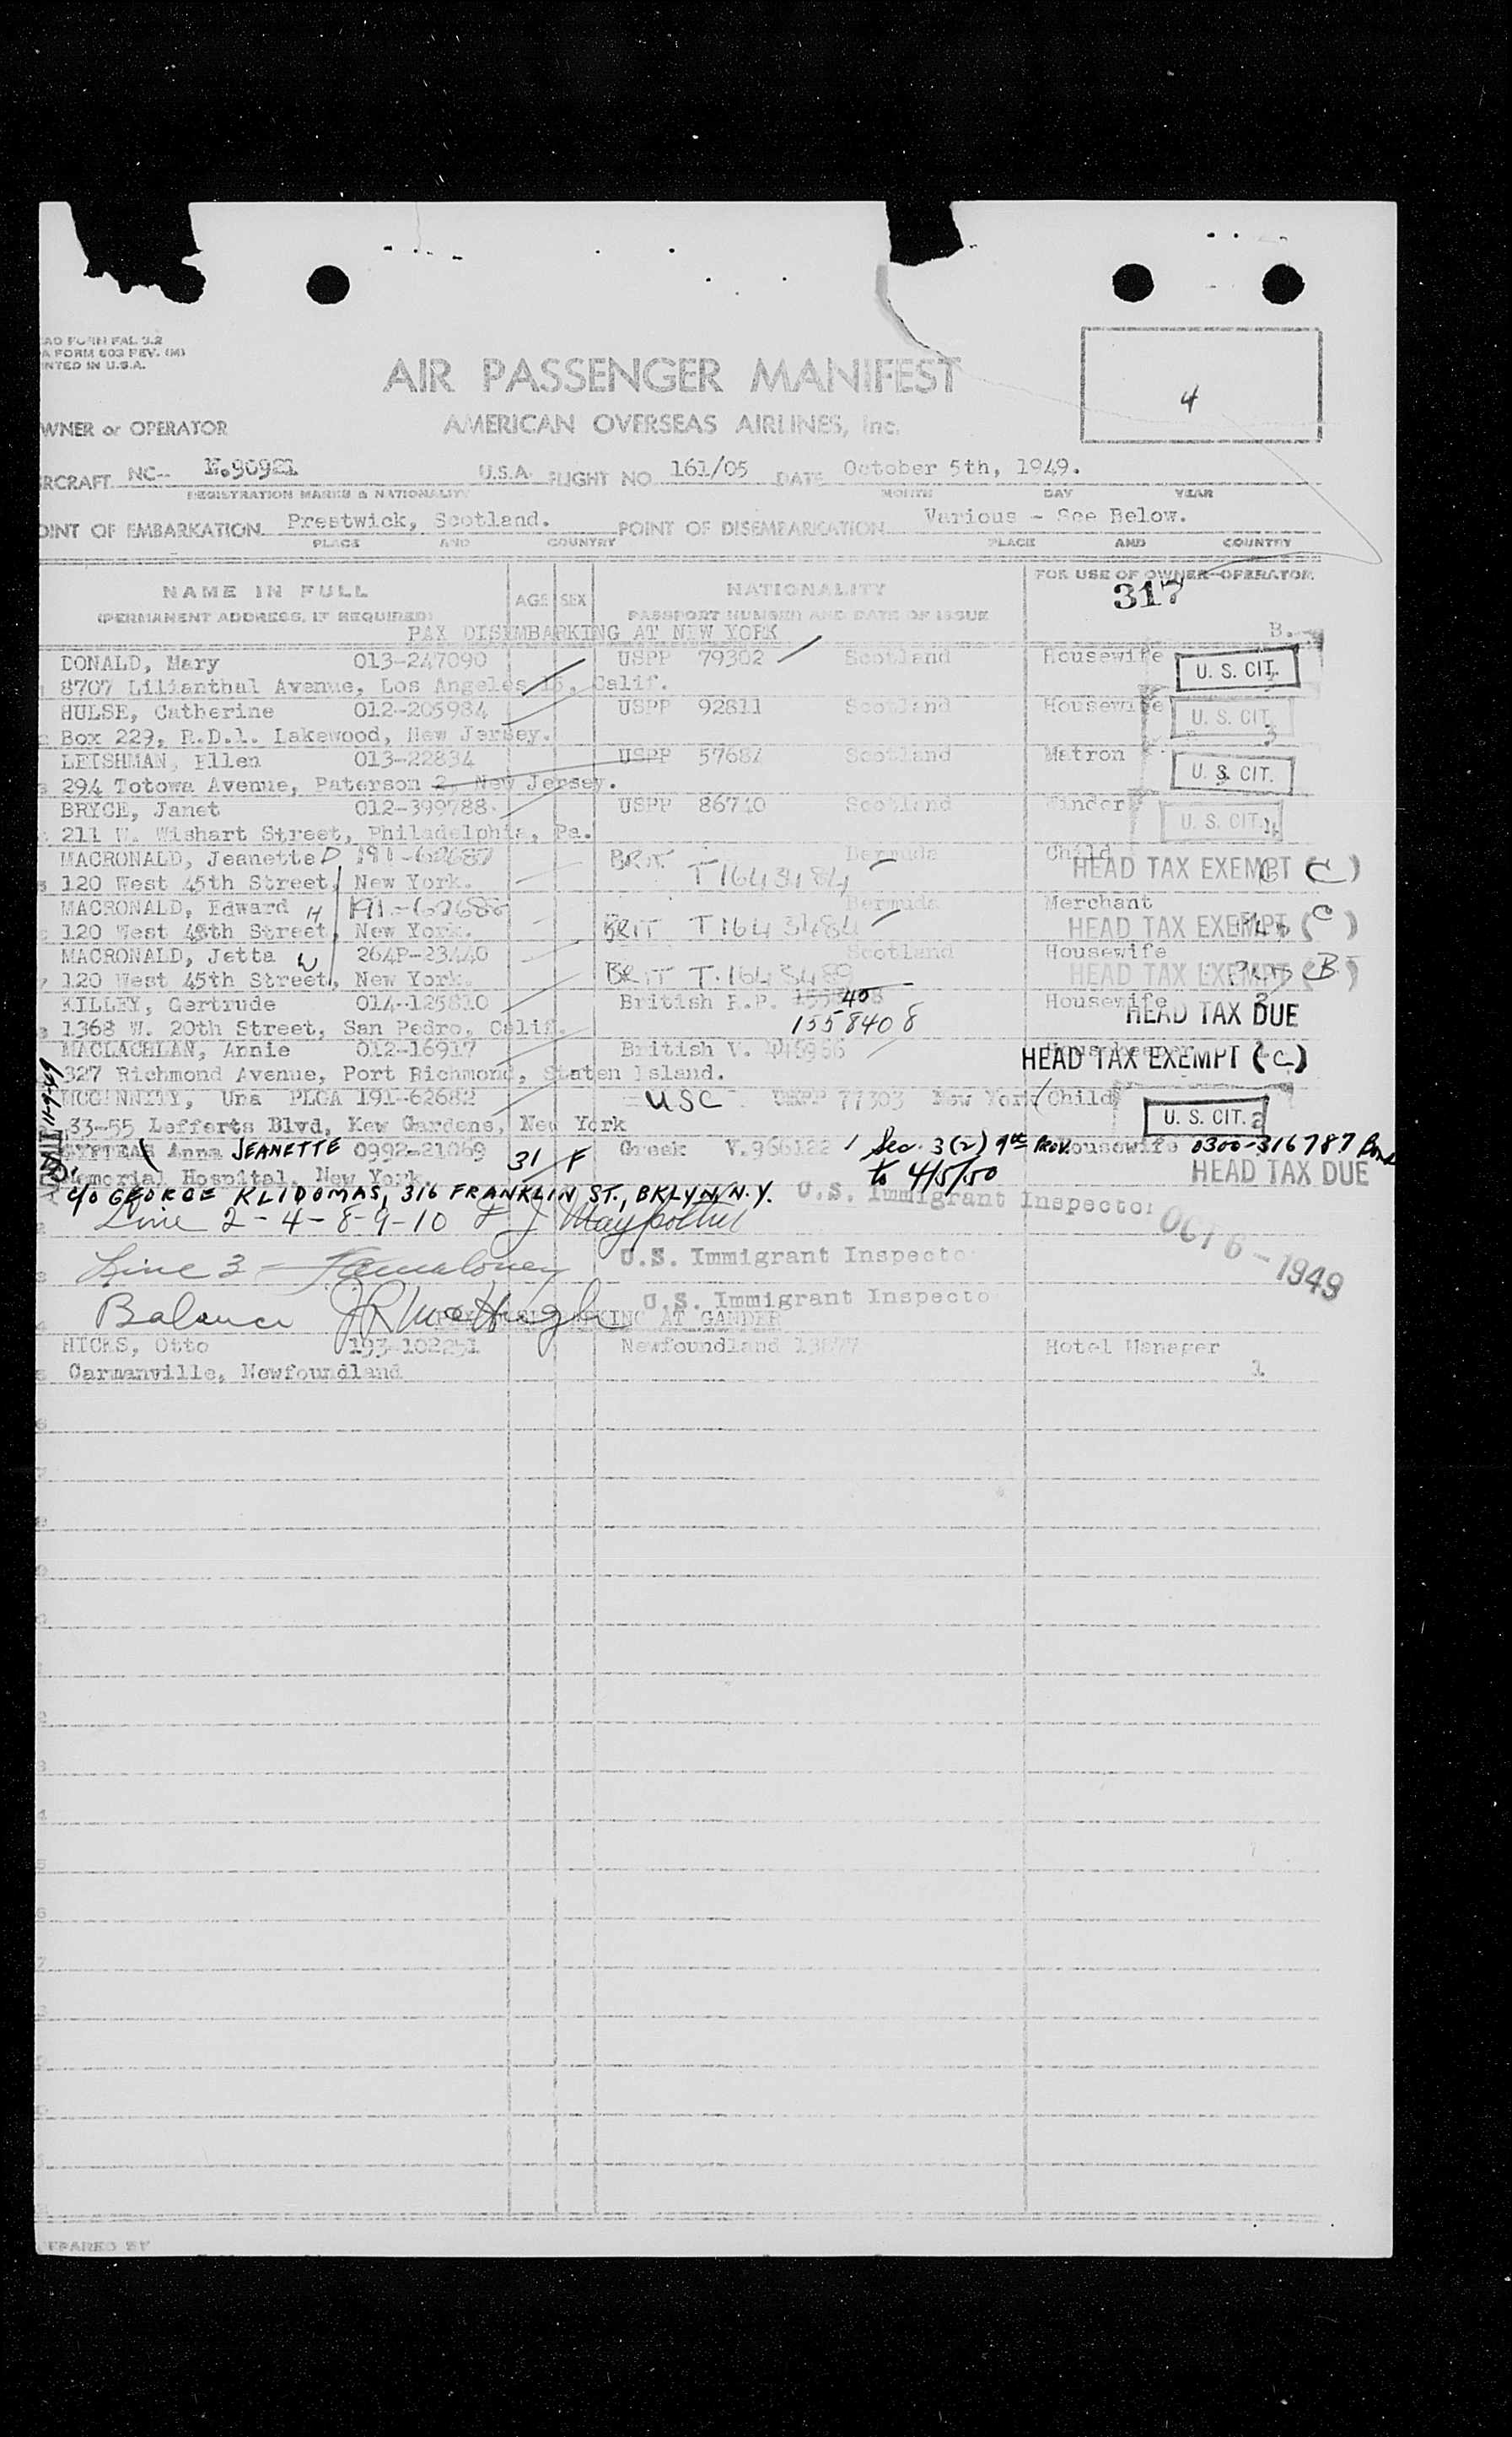 4
A FORM 603 REV. (M)
NTED IN U.S.A.
AIR PASSENGER MANIFEST
WNER or OPERATOR AMERICAN OVERSEAS AIRLINES, Inc.
RCRAFT NC-- N.90921 U.S.A. FLIGHT NO. 161/05 DATE October 5th, 1949.
REGISTRATION MARKS & NATIONALITY MONTH DAY YEAR
OINT OF EMBARKATION Prestwick, Scotland. POINT OF DISEMBARKATION Various - See Below.
PLACE AND COUNTRY PLACE AND COUNTRY
NAME IN FULL AGE SEX NATIONALITY FOR USE OF OWNER-OPERATOR
(PERMANENT ADDRESS, IF REQUIRED) PASSPORT NUMBER AND DATE OF ISSUE 317
PAX DISEMBARKING AT NEW YORK B.
DONALD, Mary 013-247090 USPP 79302 Scotland Housewife U. S. CIT.
8707 Lilianthal Avenue, Los Angeles Calif.
HULSE, Catherine 012-205984 USPP 92811 Scotland Housewife U. S. CIT. 3
Box 229, R.D.1. Lakewood, New Jersey.
LEISHMAN, Ellen 013-22834 USPP Scotland Matron U. S. CIT.
294 Totowa Avenue, Paterson 2, New Jersey.
BRYCE, Janet 012-399788 USPP 86710 Scotland Winder U. S. CIT. 4
211 W. Wishart Street, Philadelphia, Pa.
MACRONALD, Jeanette D 191-62687 BRIT T1643484 Bermuda Child HEAD TAX EXEMPT (C)
120 West 45th Street, New York.
MACRONALD, Edward H 191-62688 BRIT T1643484 Bermuda Merchant HEAD TAX EXEMPT (C)
120 West 45th Street, New York.
MACRONALD, Jetta W 264P-23440 BRIT T.1643489 Scotland Housewife HEAD TAX EXEMPT (B)
120 West 45th Street, New York.
KILLEY, Gertrude 014-125810 British R.P. 1558408 Housewife HEAD TAX DUE
1368 W. 20th Street, San Pedro, Calif.
MACLACHLAN, Annie 012-16917 British V. HEAD TAX EXEMPT (C)
327 Richmond Avenue, Port Richmond, Staten Island.
MCGINNITY, Una PLGA 191-62682 USC USPP 77303 New York Child U. S. CIT. 2
33-55 Lefferts Blvd, Kew Gardens, New York
Anna JEANETTE 0992-21069 31 F Greek V.966122 Sec. 3(2) 9th Prov. Housewife 0300-316787 Bond
to 4/5/50 HEAD TAX DUE
Memorial Hospital, New York.
c/o GEORGE KLIDOMAS, 316 FRANKLIN ST., BKLYN, N.Y. U.S. Immigrant Inspector
Line 2-4-8-9-10
OCT 6-1949
Line 3 U.S. Immigrant Inspecto
Balance U.S. Immigrant Inspecto
AT GANDER
HICKS, Otto 193-102251 Newfoundland 13877 Hotel Manager
Carmanville, Newfoundland 1
EPARED BY